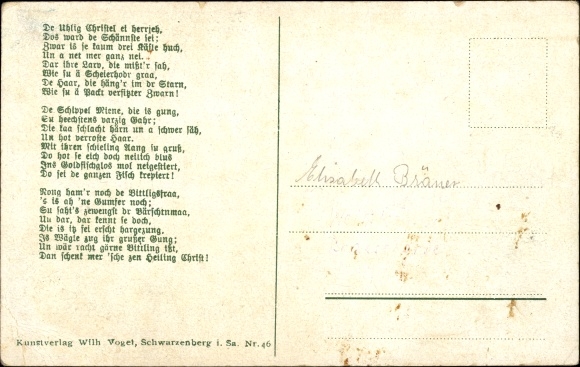 De Uhlig Christel ei herrjeh,
Dos ward de Schännste sei;
Zwar is se kaum drei Käsle huch,
Un a net mer ganz nei.
Dar ihre Larv, die mißt'r sah,
Wie su ä Scheierhodr graa,
De Haar, die häng'r im dr Starn,
Wie su ä Packt versitzter Zwarn!
De Schippel Miene, die is gung,
Su heechstens varzig Gahr;
Die kaa schlacht härn un a schwer säh,
Un hot verroste Haar.
Mit ihren schieling Aang su gruß,
Do hot se eich doch neilich blus
Ins Goldfischglos mol neigestiert,
Do sei de ganzen Fisch krepiert!
Nong ham'r noch de Bittligsfraa,
's is ah 'ne Gumfer noch;
Su saht's zewengst dr Bärschtnmaa,
Un dar, dar kennt se doch,
Die is itz sei erscht hargezung.
Is Wägle zug ihr grußer Gung;
Un wär racht gärne Bittling ißt,
Dan schenk mer 'sche zen Heiling Christ!
Elisabell Bräuer
Kunstverlag Wilh Vogel, Schwarzenberg i. Sa. Nr. 46